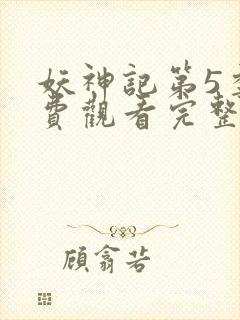 妖神記第5季
費觀看完整
顧翕若